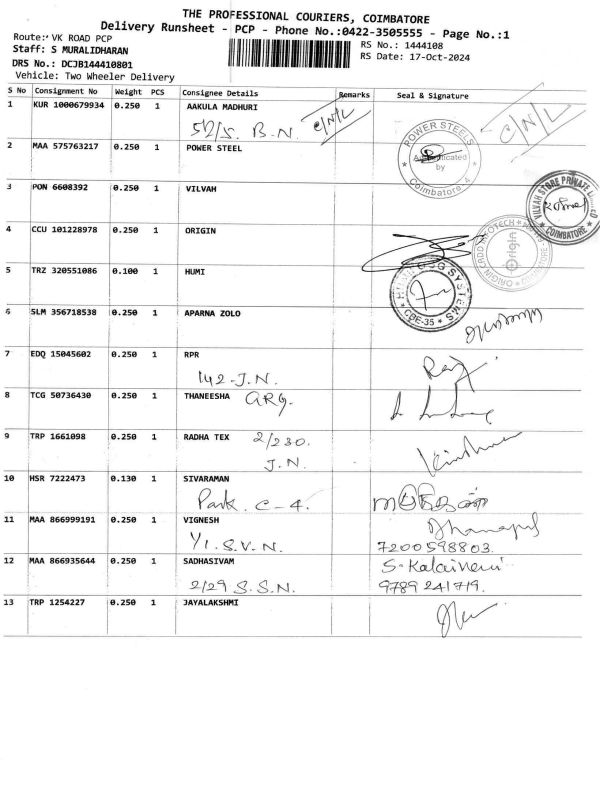 THE PROFESSIONAL COURIERS, COIMBATORE
Delivery Runsheet - PCP - Phone No.:0422-3505555 - Page No.:1
Route: VK ROAD PCP
Staff: S MURALIDHARAN
DRS No.: DCJB144410801
Vehicle: Two Wheeler Delivery
RS No.: 1444108
RS Date: 17-Oct-2024
S No Consignment No Weight PCS Consignee Details Remarks Seal & Signature
1 KUR 1000679934 0.250 1 AAKULA MADHURI
52/5. B.N. C/N/L C/N/L
2 MAA 575763217 0.250 1 POWER STEEL
POWER STEELS
Authenticated
by
Coimbatore-4
3 PON 6608392 0.250 1 VILVAH
VILVAH STORE PRIVATE
COIMBATORE
4 CCU 101228978 0.250 1 ORIGIN
origin
5 TRZ 320551086 0.100 1 HUMI
SYSTEMS
CBE-35
6 SLM 356718538 0.250 1 APARNA ZOLO
7 EDQ 15045602 0.250 1 RPR
142-J.N.
8 TCG 50736430 0.250 1 THANEESHA GRG.
9 TRP 1661098 0.250 1 RADHA TEX 2/230.
J.N.
10 HSR 7222473 0.130 1 SIVARAMAN
Park. C-4.
11 MAA 866999191 0.250 1 VIGNESH Dhanapal
Y1. S.V.N. 7200598803.
12 MAA 866935644 0.250 1 SADHASIVAM S-Kalaiveni
2/29 S.S.N. 9789241719.
13 TRP 1254227 0.250 1 JAYALAKSHMI